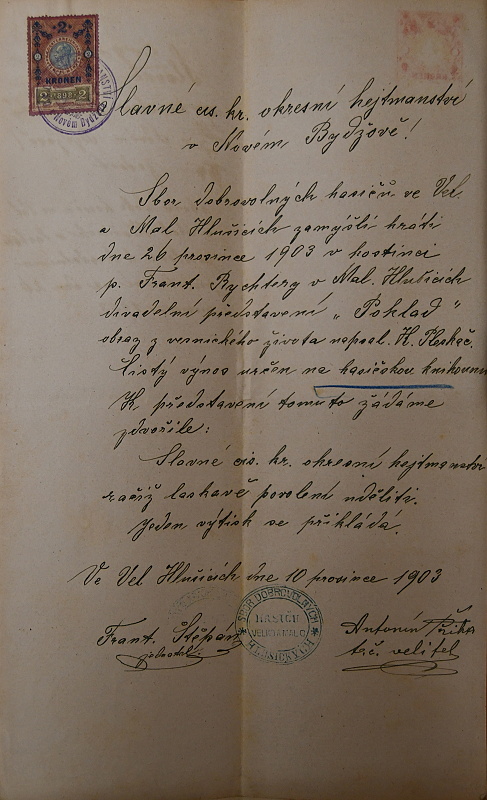 2
KRONEN
2 1898 2
Slavné cis. kr. okresní hejtmanství
v Novém Bydžově!
Sbor dobrovolných hasičů ve Vel.
a Mal. Hlušicích zamýšlí hráti
dne 26 prosince 1903 v hostinci
p. Frant. Rychtery v Mal. Hlušicích
divadelní představení „Poklad“
obraz z vesnického života napsal H. Pleskač.
Čistý výnos určen na hasičskou knihovnu
K představení tomuto žádáme
zdvořile:
Slavné cis. kr. okresní hejtmanství
račiž laskavě povolení uděliti.
Jeden výtisk se přikládá.
Ve Vel Hlušicích dne 10 prosince 1903
SBOR DOBROVOLNÝCH
HASIČŮ
VELKO A MALO
HLUŠICKÝCH
Frant. Štěpán
jednatel
Antonín
t.č. velitel